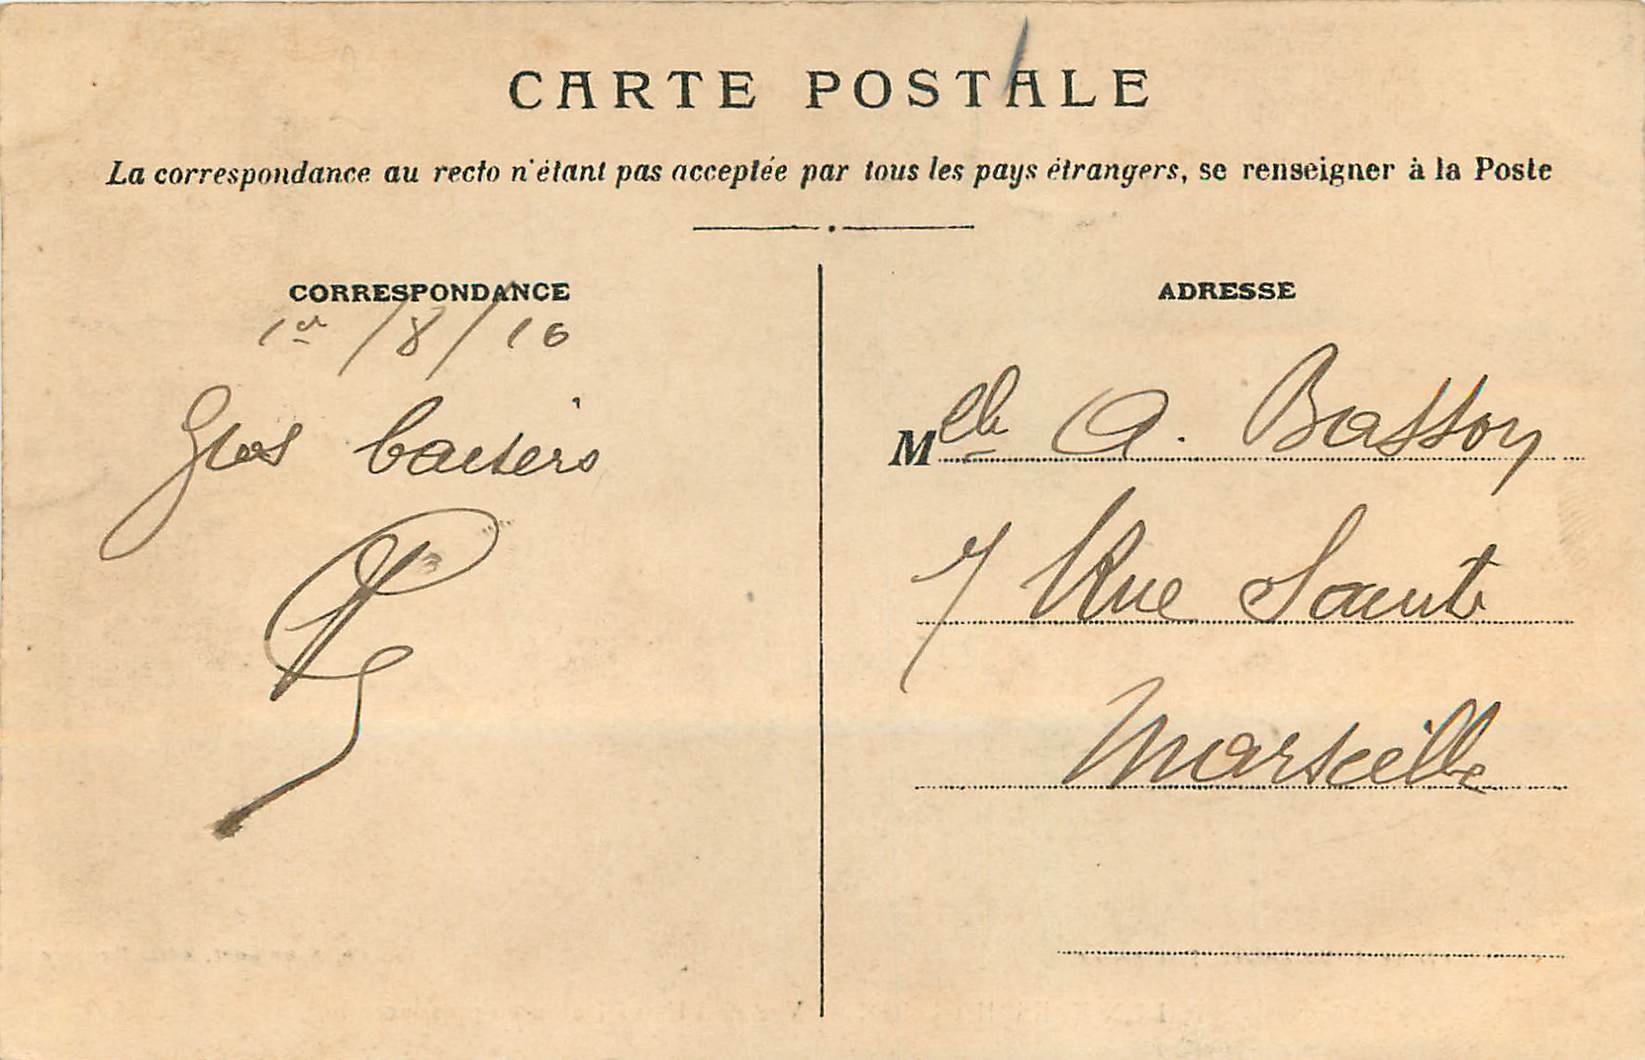 CARTE POSTALE
La correspondance au recto n'étant pas acceptée par tous les pays étrangers, se renseigner à la Poste
CORRESPONDANCE
1er/8/16
Gros baisers
ADRESSE
Mlle A. Bassoy
7 Rue Sainte
Marseille